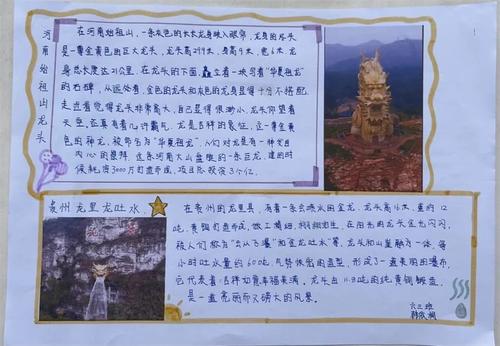 河南始祖山龙头
在河南始祖山，一条灰色的长长龙身映入眼帘，龙身的尽头
是一尊金黄色的巨大龙头，龙头高29.9米，身高9米，宽6米，龙
身总长度达21公里。在龙头的下面，矗立着一块写着"华夏祖龙"
的石碑，从远处看，金色的龙头和灰色的龙身显得十分不搭配
走近看觉得龙头非常高大，自己显得很渺小，龙头仰望着
天空，还真有着几许霸气。龙是吉祥的象征，这一尊金黄
色的神龙，被命名为"华夏祖龙"。人们对龙是有一种发自
内心的崇拜，这条河南大山盘旋的一条巨龙，建的时
候耗资3000万打造而成，项目总投资3个亿
贵州龙里龙吐水
在贵州的龙里县，有着一条会喷水的金龙，龙头高16米，重约12
吨，黄铜打造而成，做工精细，栩栩如生，在阳光的龙头金光闪闪，
被人们称为"云从飞瀑"和金龙吐水等，龙头和山崖融为一体，每
小时吐水量约600吨，气势恢宏的造型，形成了一道美丽的瀑布，
它代表着吉祥如意幸福美满。龙头由11.8吨的纯黄铜锻造，
是一道亮丽而又磅大的风景。
六三班